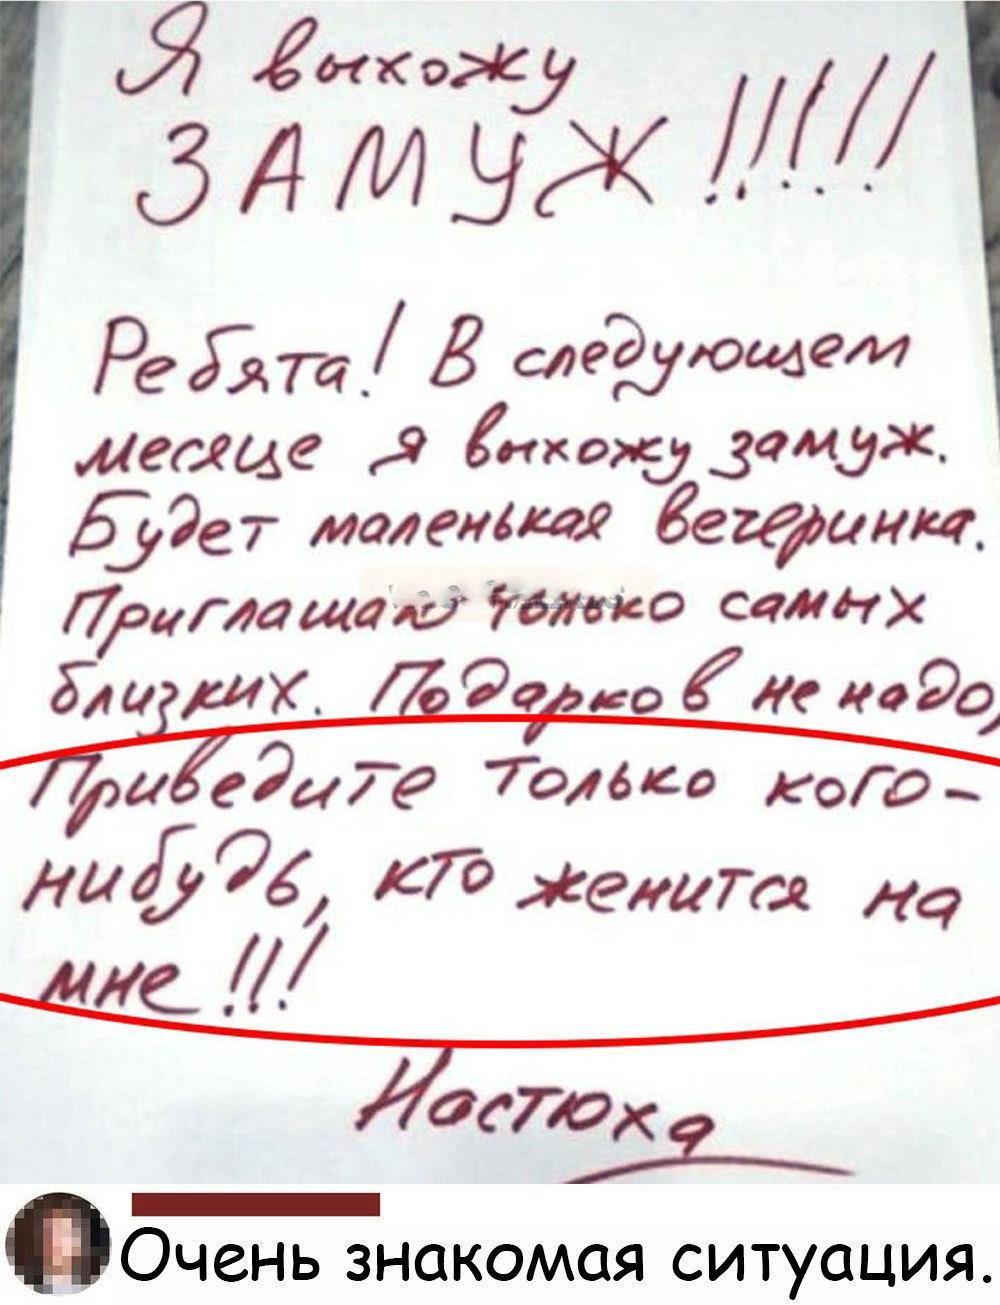 Я выхожу
ЗАМУЖ!!!!!!
Ребята! В следующем
месяце я выхожу замуж.
Будет маленькая вечеринка.
Приглашаю только самых
близких. Подарков не надо,
Приведите только кого-
нибудь, кто женится на
мне!!!
Настюха
Очень знакомая ситуация.